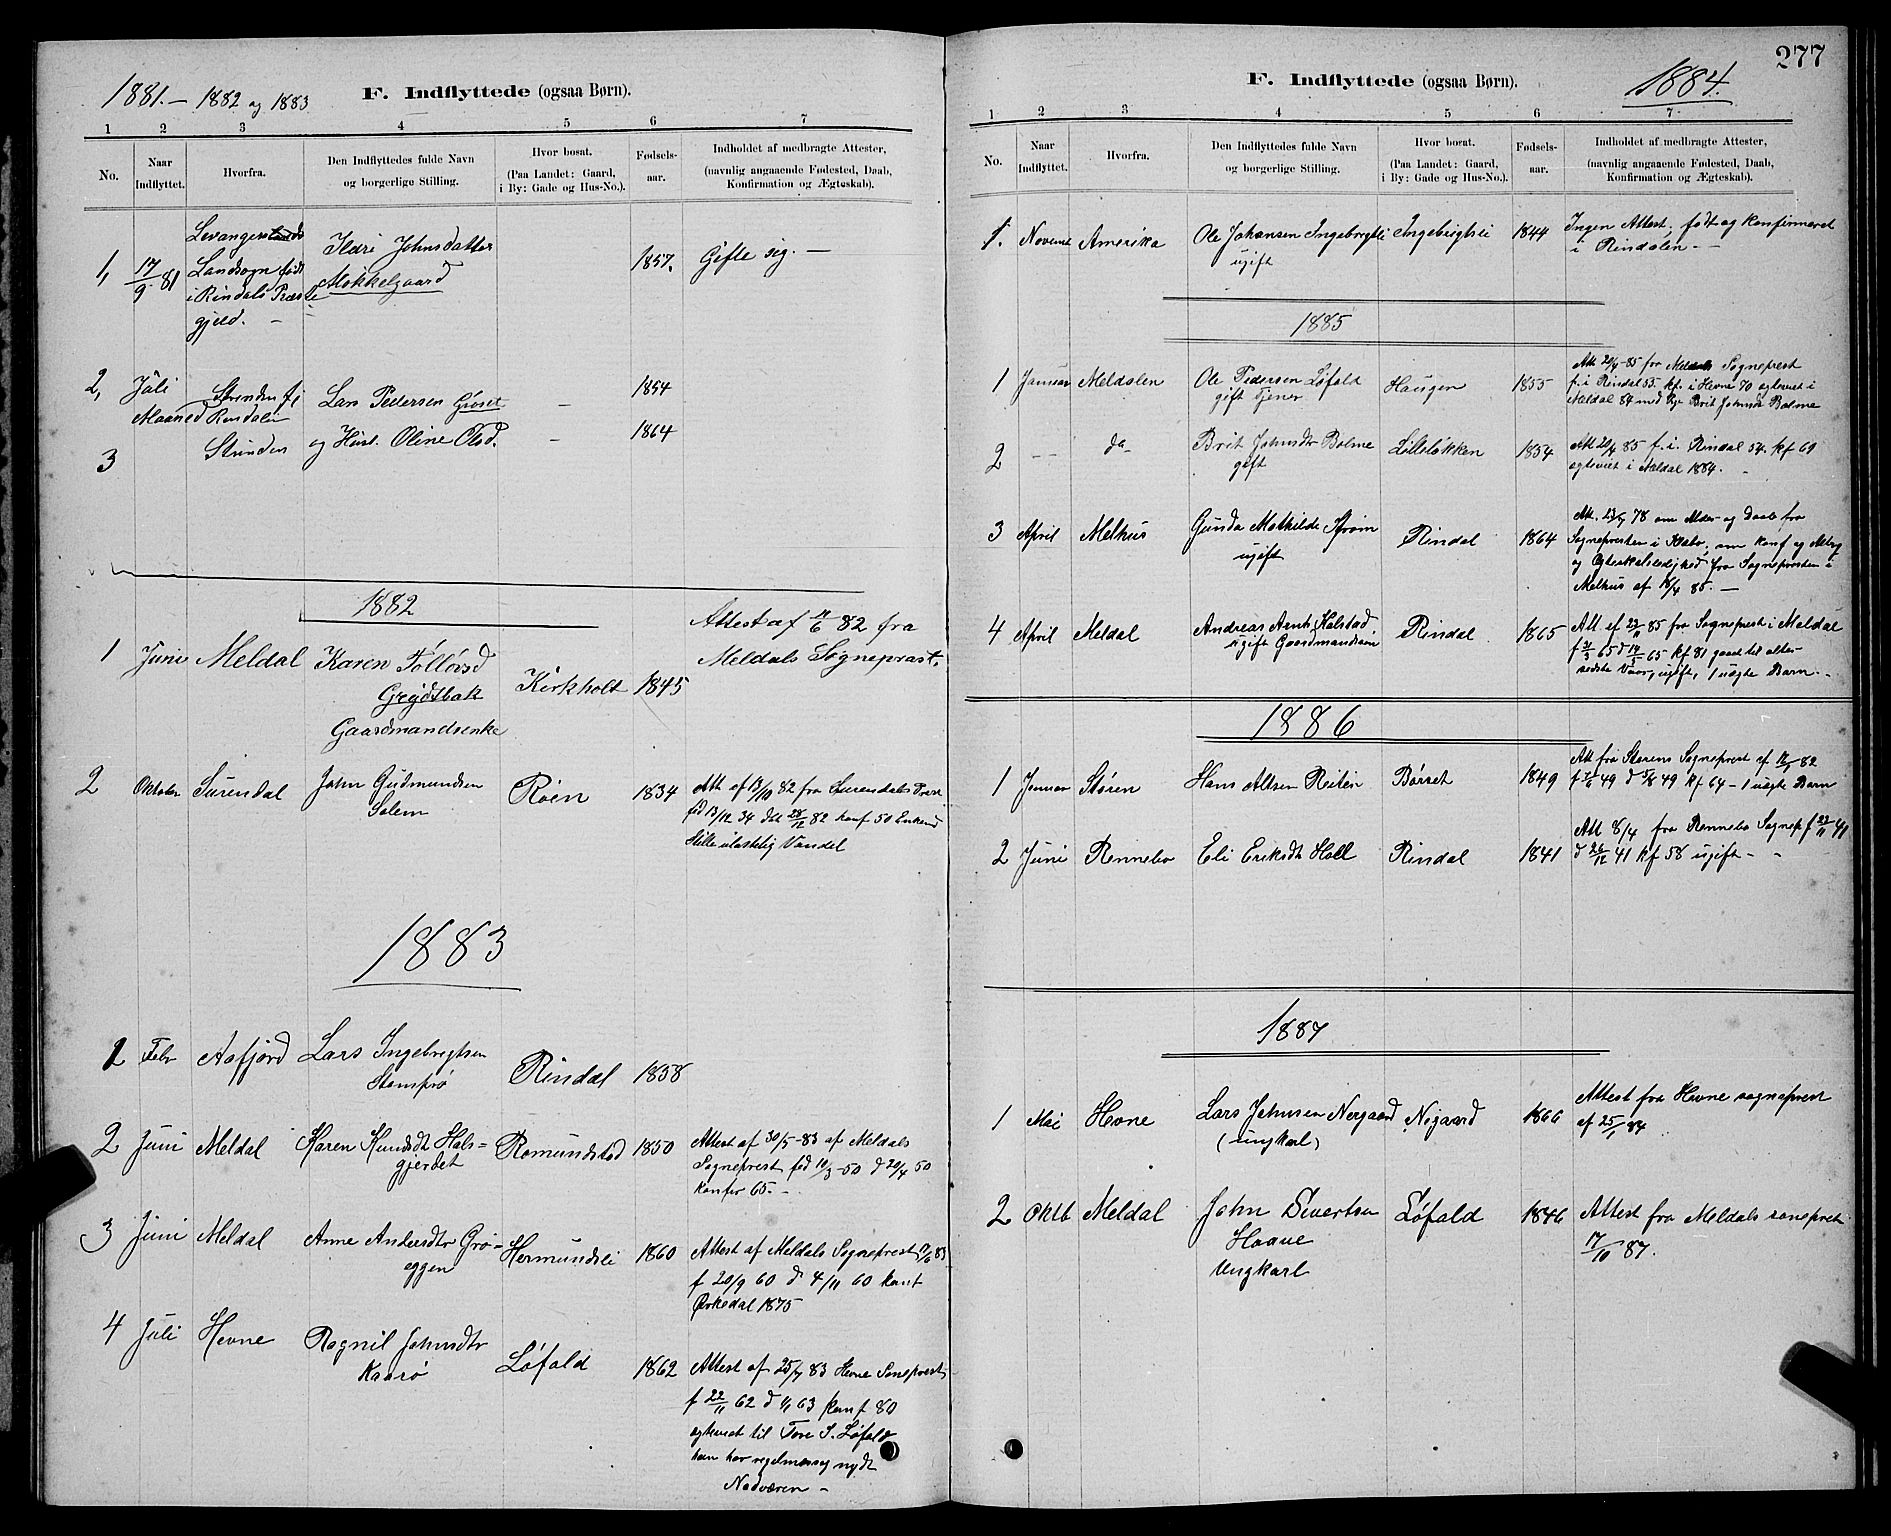 1881.- 1882 og 1883
F. Indflyttede (ogsaa Børn).
1 2 3 4 5 6 7
No.
Naar
Indflyttet.
Hvorfra.
Den Indflyttedes fulde Navn
og borgerlige Stilling.
Hvor bosat.
(Paa Landet: Gaard,
i By: Gade og Hus-No.).
Fødsels-
aar.
Indholdet af medbragte Attester,
(navnlig angaaende Fødested, Daab,
Konfirmation og Ægteskab).
1, 17/9 81
Levanger
Landsogn født
i Rindals Præste
gjeld. -
Ildri Johnsdatter
Mokkelgaard
1857.
Gifte sig. -
2, Juli
Maaned
Rindalen
Lars Pedersen Groset - 1854
3 Stunden og Hust. Oline Olsd. - 1864
1882
1 Juni Meldal Karen Tølløvsd
Grydtbak
Gaardmandsenke
Kirkholt 1845
Attest af 17/6 82 fra
Meldals Sognepræst.
2 Oktober Surendal John Gudmundsen
Solem
Røen 1834
Att. af 13/10 82 fra Surendals Præst
fød 13/12 34 døbt 28/12 82 konf 50 Enkemd
stille ulastelig Vandel
1883
1 Febr Aafjord Lars Ingebregtsen
Stomprø
Rindal 1858
2 Juni Meldal Karen Knudsdt Hals-
gjerdet
Romundstad 1850
Attest af 30/5-83 af Meldals
Sogneprest fød 10/3-50 d 20/4 50
konfir 65. -
3 Juni Meldal Anne Andersdtr Gro-
eggen
Hermundsli 1860
Attest af Meldals Sogneprest 17/6 83
f 20/9 60 d 4/11 60 konf
Ørkedal 1875
4 Juli Hevne Ragnil Johnsdtr
Kaarø
Løfald 1862
Attest af 25/7 83 Hevne Soneprest
f 22/11 62 d 1/1 63 konf 80
agteviet til Tore S. Løfald
hun har regelmæssig nydt
Nadværen -
277
F. Indflyttede (ogsaa Børn).
1884.
1 2 3 4 5 6 7
No.
Naar
Indflyttet.
Hvorfra.
Den Indflyttedes fulde Navn
og borgerlige Stilling.
Hvor bosat.
(Paa Landet: Gaard,
i By: Gade og Hus-No.).
Fødsels-
aar.
Indholdet af medbragte Attester,
(navnlig angaaende Fødested, Daab,
Konfirmation og Ægteskab).
1. Novemt Amerika Ole Johansen Ingebrigtsli
ugift
Ingebrigtsli 1844
Ingen Attest, født og konfirmeret
i Rindalen -
1885
1 Januar Meldalen Ole Pedersen Løfald
gift Tjener
Haugen 1855
Att 20/4-85 fra Meldals Sogneprest
f. i Rindal 55. kf. i Hevne 70 agteviet i
Meldal 84 med Brit Johnsdt Bolme
2 - - do- Brit Johnsdtr Bolme
gift
Lilleløkken 1854
Att 20/4 85 f. i. Rindal 54. kf 69
agteviet i Meldal 1884. -
3 April Melhus Gunda Mathilde Strøm
ugift
Rindal 1864
Att. 23/7 78 om Alder og Daab fra
Sognepresten i Klæbo, om Konf og
og fra Sognepresten i
Melhus af 18/4 85. -
4 April Meldal Andreas Arnts Halstad
ugift Gaardmandssøn
Rindal. 1865
Att af 22/11 85 fra Sogneprest i Meldal
f 2/3 65 d 19/3 65 kf 81 gaaet til alters
sidste Vaar, ugift, 1 uægte Barn -
1886
1 Januar Støren Hans Altsen Reiten Børset 1849
Att fra Storens Sogneprest af 82
49 d 5/8 49 kf 64 - 1 uægte Barn
2 Juni Rennebo Eli Eriksdt Hall Rindal 1841
Att 8/4 fra Rennebo Sognep f 22/11 41
d 26/12 41 kf 58 ugift - -
1887
1 Mai Hevne Lars Johnsen Nergaard
(ungkarl)
Nøgaard 1866
Attest fra Hevne sogneprest
af 25/1 84
2 Oktb Meldal John Sivertsen
Haave
Ungkarl
Løfald 1846
Attest fra Meldals soneprest
17/10 87.